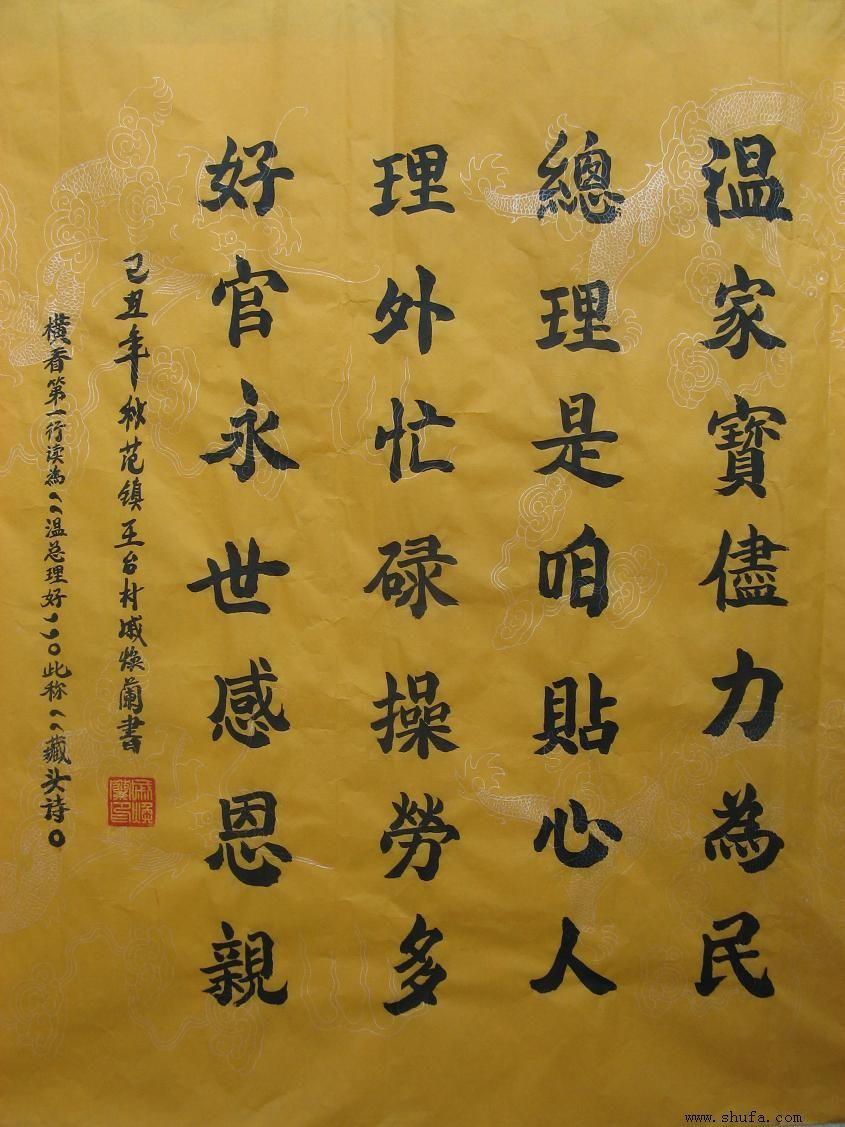 温家寶儘力為民
總理是咱貼心人
理外忙碌操勞多
好官永世感恩親
己丑年秋范镇王台村戚焕蘭書
橫看第一行读為“温总理好”。此称“藏头诗。
www.shufa.com